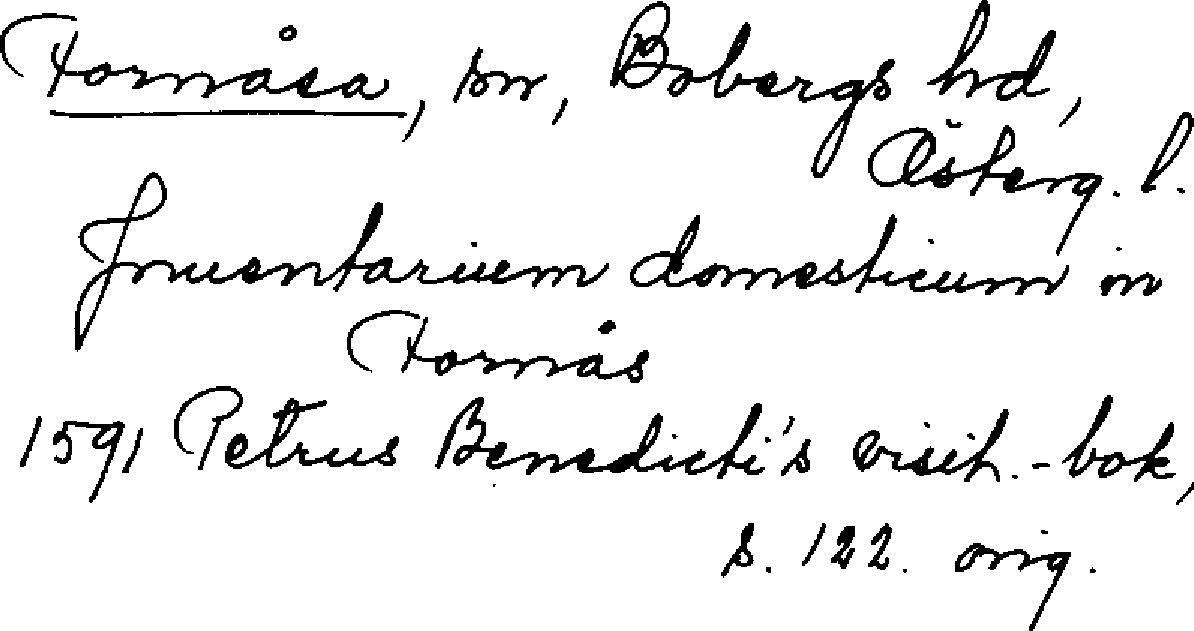 Fornåsa, sn, Bobergs hd,
Österg. l.
Jnuentarium domesticum in
Fornås
1591 Petrus Benedicti's visit.-bok,
s. 122. orig.